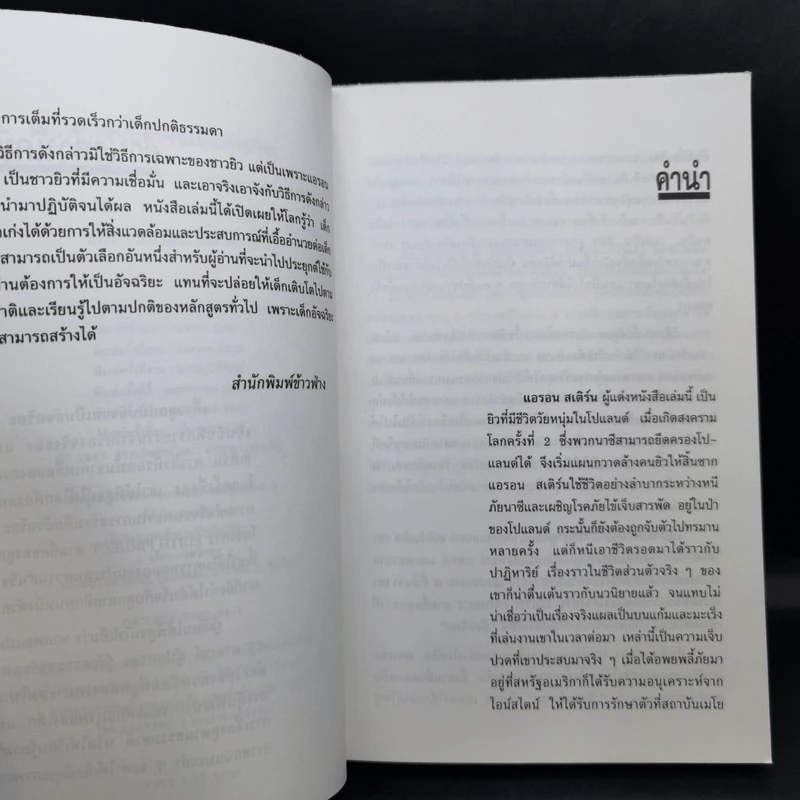 การเต็มที่รวดเร็วกว่าเด็กปกติธรรมดา
วิธีการดังกล่าวมิใช่วิธีการเฉพาะของชาวยิว แต่เป็นเพราะแอรอน
เป็นชาวยิวที่มีความเชื่อมั่น และเอาจริงเอาจังกับวิธีการดังกล่าว
นำมาปฏิบัติจนได้ผล หนังสือเล่มนี้ได้เปิดเผยให้โลกรู้ว่า เด็ก
เก่งได้ด้วยการให้สิ่งแวดล้อมและประสบการณ์ที่เอื้ออำนวยต่อเด็ก
สามารถเป็นตัวเลือกอันหนึ่งสำหรับผู้อ่านที่จะนำไปประยุกต์ใช้กับ
ต้องการให้เป็นอัจฉริยะ แทนที่จะปล่อยให้เด็กเติบโตไปตาม
และเรียนรู้ไปตามปกติของหลักสูตรทั่วไป เพราะเด็กอัจฉริยะ
สามารถสร้างได้
สำนักพิมพ์ข้าวฟ่าง
คำนำ
แอรอน สเติร์น ผู้แต่งหนังสือเล่มนี้ เป็น
ยิวที่มีชีวิตวัยหนุ่มในโปแลนด์ เมื่อเกิดสงคราม
โลกครั้งที่ 2 ซึ่งพวกนาซีสามารถยึดครองโป-
แลนด์ได้ จึงเริ่มแผนกวาดล้างคนยิวให้สิ้นซาก
แอรอน สเติร์นใช้ชีวิตอย่างลำบากระหว่างหนี
ภัยนาซีและเผชิญโรคภัยไข้เจ็บสารพัด อยู่ในป่า
ของโปแลนด์ กระนั้นก็ยังต้องถูกจับตัวไปทรมาน
หลายครั้ง แต่ก็หนีเอาชีวิตรอดมาได้ราวกับ
ปาฏิหาริย์ เรื่องราวในชีวิตส่วนตัวจริง ๆ ของ
เขาก็น่าตื่นเต้นราวกับนวนิยายแล้ว จนแทบไม่
น่าเชื่อว่าเป็นเรื่องจริงแผลเป็นบนแก้มและมะเร็ง
ที่เล่นงานเขาในเวลาต่อมา เหล่านี้เป็นความเจ็บ
ปวดที่เขาประสบมาจริง ๆ เมื่อได้อพยพลี้ภัยมา
อยู่ที่สหรัฐอเมริกาก็ได้รับความอนุเคราะห์จาก
ไอน์สไตน์ ให้ได้รับการรักษาตัวที่สถาบันเมโย